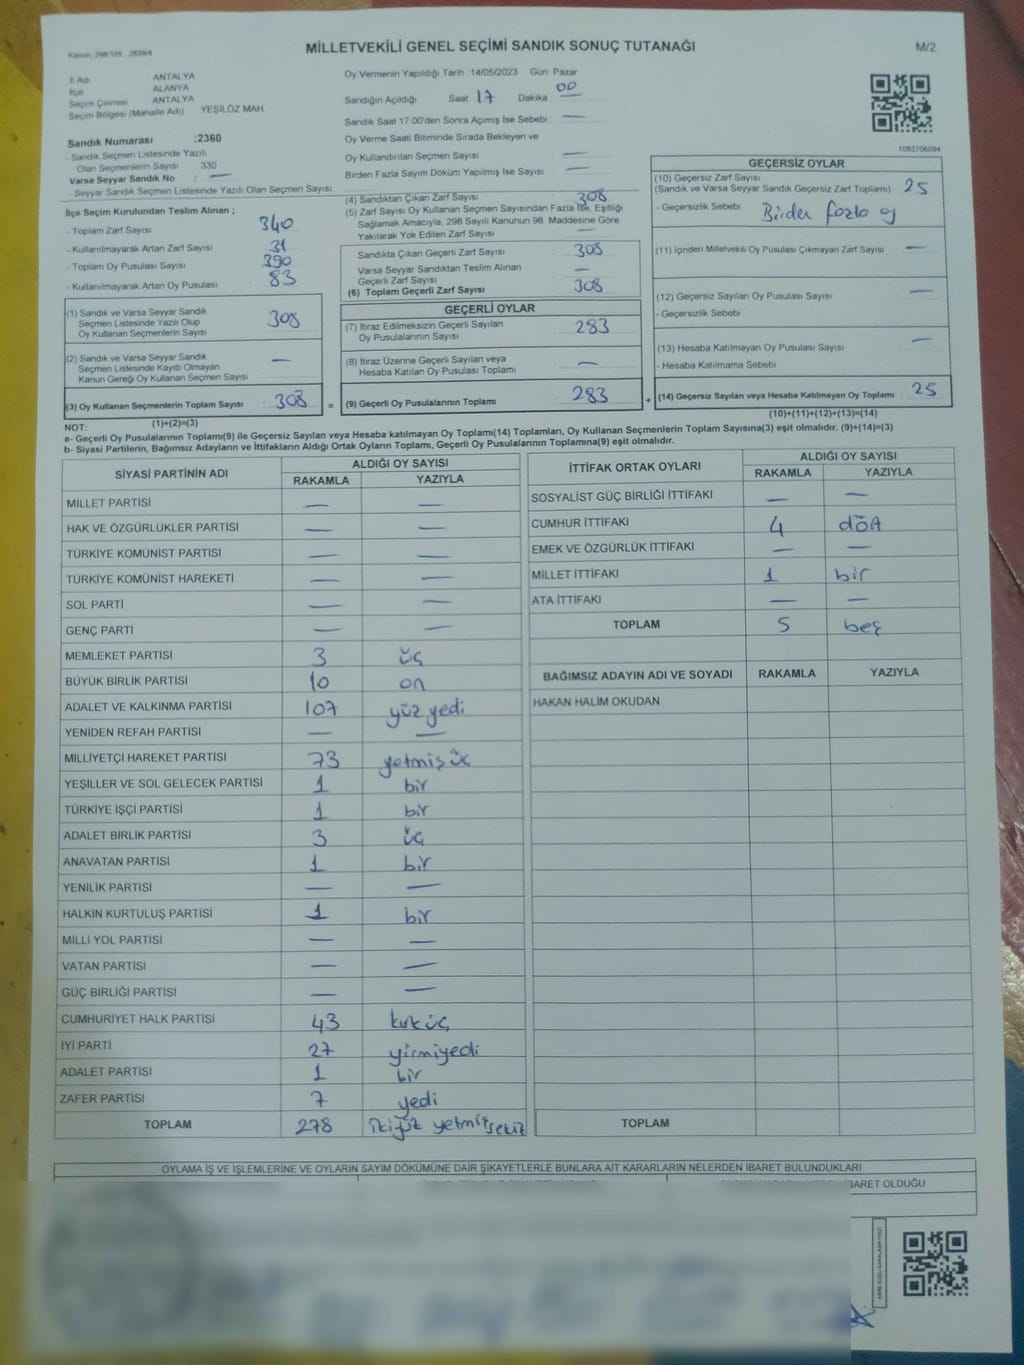 Kanun, 298/105 , 2839/4
MİLLETVEKİLİ GENEL SEÇİMİ SANDIK SONUÇ TUTANAĞI
M/2
İl Adı ANTALYA
İlçe ALANYA
Seçim Çevresi ANTALYA
Seçim Bölgesi (Mahalle Adı) YEŞİLÖZ MAH
Sandık Numarası :2360
- Sandık Seçmen Listesinde Yazılı
Olan Seçmenlerin Sayısı : 330
Varsa Seyyar Sandık No : —
- Seyyar Sandık Seçmen Listesinde Yazılı Olan Seçmen Sayısı
Oy Vermenin Yapıldığı Tarih :14/05/2023 Gün: Pazar
Sandığın Açıldığı Saat 17 Dakika 00
Sandık Saat 17.00'den Sonra Açımış İse Sebebi —
Oy Verme Saati Bitiminde Sırada Bekleyen ve
Oy Kullandırılan Seçmen Sayısı —
Birden Fazla Sayım Döküm Yapılmış İse Sayısı —
1083706094
İlçe Seçim Kurulundan Teslim Alınan ;
- Toplam Zarf Sayısı : 340
- Kullanılmayarak Artan Zarf Sayısı : 31
- Toplam Oy Pusulası Sayısı : 390
- Kullanılmayarak Artan Oy Pusulası : 83
(1) Sandık ve Varsa Seyyar Sandık
Seçmen Listesinde Yazılı Olup
Oy Kullanan Seçmenlerin Sayısı : 308
(2) Sandık ve Varsa Seyyar Sandık
Seçmen Listesinde Kayıtlı Olmayan
Kanun Gereği Oy Kullanan Seçmen Sayısı : —
(3) Oy Kullanan Seçmenlerin Toplam Sayısı : 308 =
(1)+(2)=(3)
(4) Sandıktan Çıkan Zarf Sayısı 308
(5) Zarf Sayısı Oy Kullanan Seçmen Sayısından Fazla İse, Eşitliği
Sağlamak Amacıyla, 298 Sayılı Kanunun 98. Maddesine Göre
Yakılarak Yok Edilen Zarf Sayısı —
Sandıkta Çıkan Geçerli Zarf Sayısı : 308
Varsa Seyyar Sandıktan Teslim Alınan
Geçerli Zarf Sayısı : —
(6) Toplam Geçerli Zarf Sayısı : 308
GEÇERLİ OYLAR
(7) İtiraz Edilmeksizin Geçerli Sayılan
Oy Pusulalarının Sayısı : 283
(8) İtiraz Üzerine Geçerli Sayılan veya
Hesaba Katılan Oy Pusulası Toplamı : —
(9) Geçerli Oy Pusulalarının Toplamı : 283 +
GEÇERSİZ OYLAR
(10) Geçersiz Zarf Sayısı
(Sandık ve Varsa Seyyar Sandık Geçersiz Zarf Toplamı) : 25
- Geçersizlik Sebebi : Birden fazla oy
(11) İçinden Milletvekili Oy Pusulası Çıkmayan Zarf Sayısı : —
(12) Geçersiz Sayılan Oy Pusulası Sayısı : —
- Geçersizlik Sebebi
(13) Hesaba Katılmayan Oy Pusulası Sayısı : —
- Hesaba Katılmama Sebebi
(14) Geçersiz Sayılan veya Hesaba Katılmayan Oy Toplamı : 25
(10)+(11)+(12)+(13)=(14)
NOT:
a- Geçerli Oy Pusulalarının Toplamı(9) ile Geçersiz Sayılan veya Hesaba katılmayan Oy Toplamı(14) Toplamları, Oy Kullanan Seçmenlerin Toplam Sayısına(3) eşit olmalıdır. (9)+(14)=(3)
b- Siyasi Partilerin, Bağımsız Adayların ve İttifakların Aldığı Ortak Oyların Toplamı, Geçerli Oy Pusulalarının Toplamına(9) eşit olmalıdır.
SİYASİ PARTİNİN ADI ALDIĞI OY SAYISI
RAKAMLA YAZIYLA
MİLLET PARTİSİ — —
HAK VE ÖZGÜRLÜKLER PARTİSİ — —
TÜRKİYE KOMÜNİST PARTİSİ — —
TÜRKİYE KOMÜNİST HAREKETİ — —
SOL PARTİ — —
GENÇ PARTİ — —
MEMLEKET PARTİSİ 3 üç
BÜYÜK BİRLİK PARTİSİ 10 on
ADALET VE KALKINMA PARTİSİ 107 yüz yedi
YENİDEN REFAH PARTİSİ — —
MİLLİYETÇİ HAREKET PARTİSİ 73 yetmiş üç
YEŞİLLER VE SOL GELECEK PARTİSİ 1 bir
TÜRKİYE İŞÇİ PARTİSİ 1 bir
ADALET BİRLİK PARTİSİ 3 üç
ANAVATAN PARTİSİ 1 bir
YENİLİK PARTİSİ — —
HALKIN KURTULUŞ PARTİSİ 1 bir
MİLLİ YOL PARTİSİ — —
VATAN PARTİSİ — —
GÜÇ BİRLİĞİ PARTİSİ — —
CUMHURİYET HALK PARTİSİ 43 kırk üç
İYİ PARTİ 27 yirmiyedi
ADALET PARTİSİ 1 bir
ZAFER PARTİSİ 7 yedi
TOPLAM 278 ikiyüz yetmiş sekiz
İTTİFAK ORTAK OYLARI ALDIĞI OY SAYISI
RAKAMLA YAZIYLA
SOSYALİST GÜÇ BİRLİĞİ İTTİFAKI — —
CUMHUR İTTİFAKI 4 döA
EMEK VE ÖZGÜRLÜK İTTİFAKI — —
MİLLET İTTİFAKI 1 bir
ATA İTTİFAKI — —
TOPLAM 5 beş
BAĞIMSIZ ADAYIN ADI VE SOYADI RAKAMLA YAZIYLA
HAKAN HALİM OKUDAN
TOPLAM
OYLAMA İŞ VE İŞLEMLERİNE VE OYLARIN SAYIM DÖKÜMÜNE DAİR ŞİKAYETLERLE BUNLARA AİT KARARLARIN NELERDEN İBARET BULUNDUKLARI
İBARET OLDUĞU